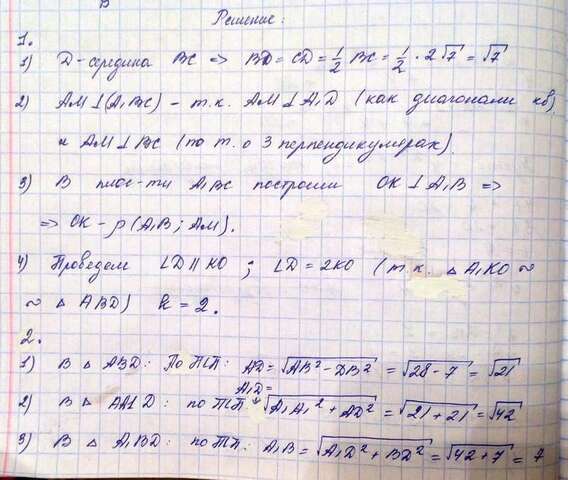 В
Решение:
1.
1) D-середина BC => BD = CD = 1/2 BC = 1/2 · 2√7 = √7
2) AM⊥(A₁BC) - т.к. AM⊥A₁D (как диагонали кв)
и AM⊥BC (по т. о 3 перпендикулярах).
3) В плос-ти A₁BC построим OK⊥A₁B =>
=> OK - ρ(A₁B; AM).
4) Проведем LD∥KO ; LD = 2KO (т.к. △A₁KO ~
~ △ABD) k = 2.
2.
1) В △ ABD: По ТП: AD = √(AB² - DB²) = √(28 - 7) = √21
A₁D =
2) В △ AA1D: по ТП √(A₁A₁² + AD²) = √(21 + 21) = √42
3) В △ A₁BD: по ТП: A₁B = √(A₁D² + BD²) = √(42 + 7) = 7